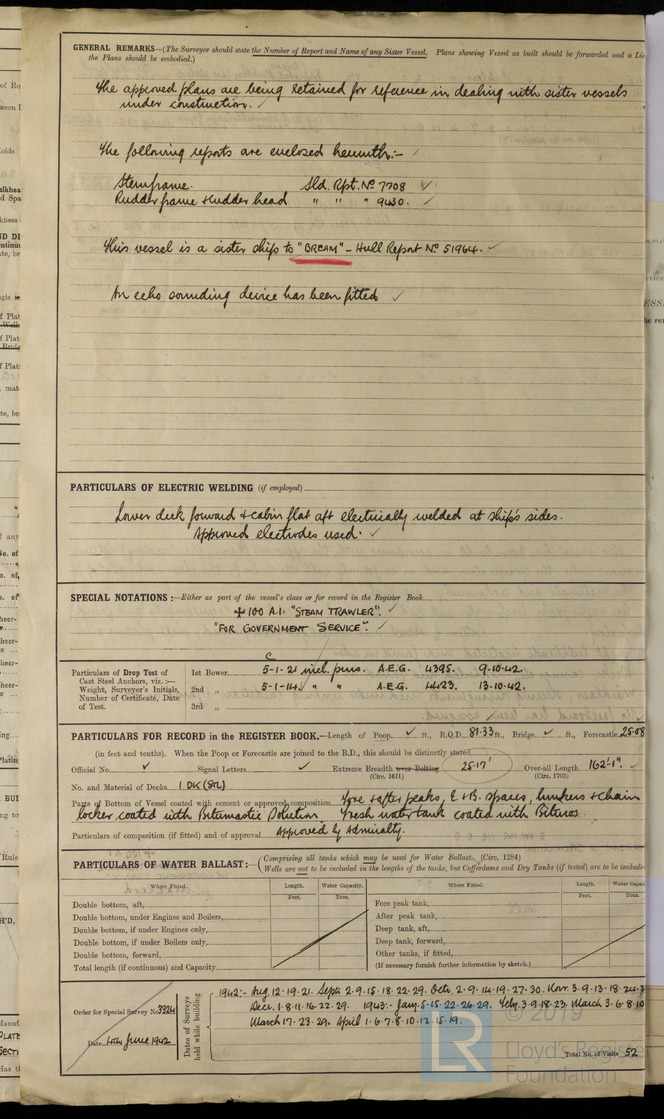 GENERAL REMARKS—(The Surveyor should state the Number of Report and Name of any Sister Vessel. Plans showing Vessel as built should be forwarded and a
the Plans should be embodied.)
The approved plans are being retained for reference in dealing with sister vessels
under construction. ✓
The following reports are enclosed herewith:- ✓
Sternframe. Sld. Rpt. No 7708 ✓
Rudder frame & rudder head " " " 9430. ✓
This vessel is a sister ship to "BREAM" - Hull Report No 51964. ✓
An echo sounding device has been fitted ✓
PARTICULARS OF ELECTRIC WELDING (if employed)
Lower deck forward & cabin flat aft electrically welded at ship's sides.
Approved electrodes used. ✓
SPECIAL NOTATIONS:—Either as part of the vessel's class or for record in the Register Book
✠ 100 A.1. "STEAM TRAWLER". ✓
"FOR GOVERNMENT SERVICE". ✓
Particulars of Drop Test of
Cast Steel Anchors, viz. :—
Weight, Surveyor's Initials,
Number of Certificate, Date
of Test.
c
1st Bower 5-1-21 A.E.G. 4395. 9-10-42.
2nd „ 5-1-14. " " A.E.G. 4423. 13-10-42.
3rd „
PARTICULARS FOR RECORD in the REGISTER BOOK.—Length of Poop ✓ ft., R.Q.D. 81.33 ft., Bridge ✓ ft., Forecastle 25.08
(in feet and tenths). When the Poop or Forecastle are joined to the B.D., this should be distinctly stated
Official No. ✓ Signal Letters ✓ Extreme Breadth over Belting 25.17' Over-all Length 162'-1". ✓
(Circ. 1611) (Circ. 1703)
No. and Material of Decks 1 DK (STL)
Parts of Bottom of Vessel coated with cement or approved composition Fore & after peaks, E & B. spaces, bunkers & chain
locker coated with Bitumastic Solution. Fresh water tank coated with Bituros.
Particulars of composition (if fitted) and of approval Approved by Admiralty.
PARTICULARS OF WATER BALLAST:— (Comprising all tanks which may be used for Water Ballast. (Circ. 1284)
Wells are not to be included in the lengths of the tanks, but Cofferdams and Dry Tanks (if tested) are to be include
Where Fitted. Length. Water Capacity. Where Fitted. Length. Water Capac
Feet. Tons. Feet. Tons.
Double bottom, aft, Fore peak tank,
Double bottom, under Engines and Boilers, After peak tank,
Double bottom, if under Engines only, Deep tank, aft,
Double bottom, if under Boilers only, Deep tank, forward,
Double bottom, forward, Other tanks, if fitted,
Total length (if continuous) and Capacity (If necessary furnish further information by sketch.)
Order for Special Survey No. 3324
Date June 1942
Dates of Surveys
held while building
1942:- Aug. 12.19.21. Sept. 2.9.15.18.22.29. Oct. 2.9.14.19.27.30. Nov. 3.9.13.18.24.
Dec. 1.8.11.16.22.29. 1943:- Jan. 5.15.22.26.29. Feby. 3.9.18.23. March 3.6.8.10
March 17.23.29. April 1.6.7.8.10.12.15.19.
Total No. of Visits 52
© 2019
LR
Lloyd's Register
Foundation